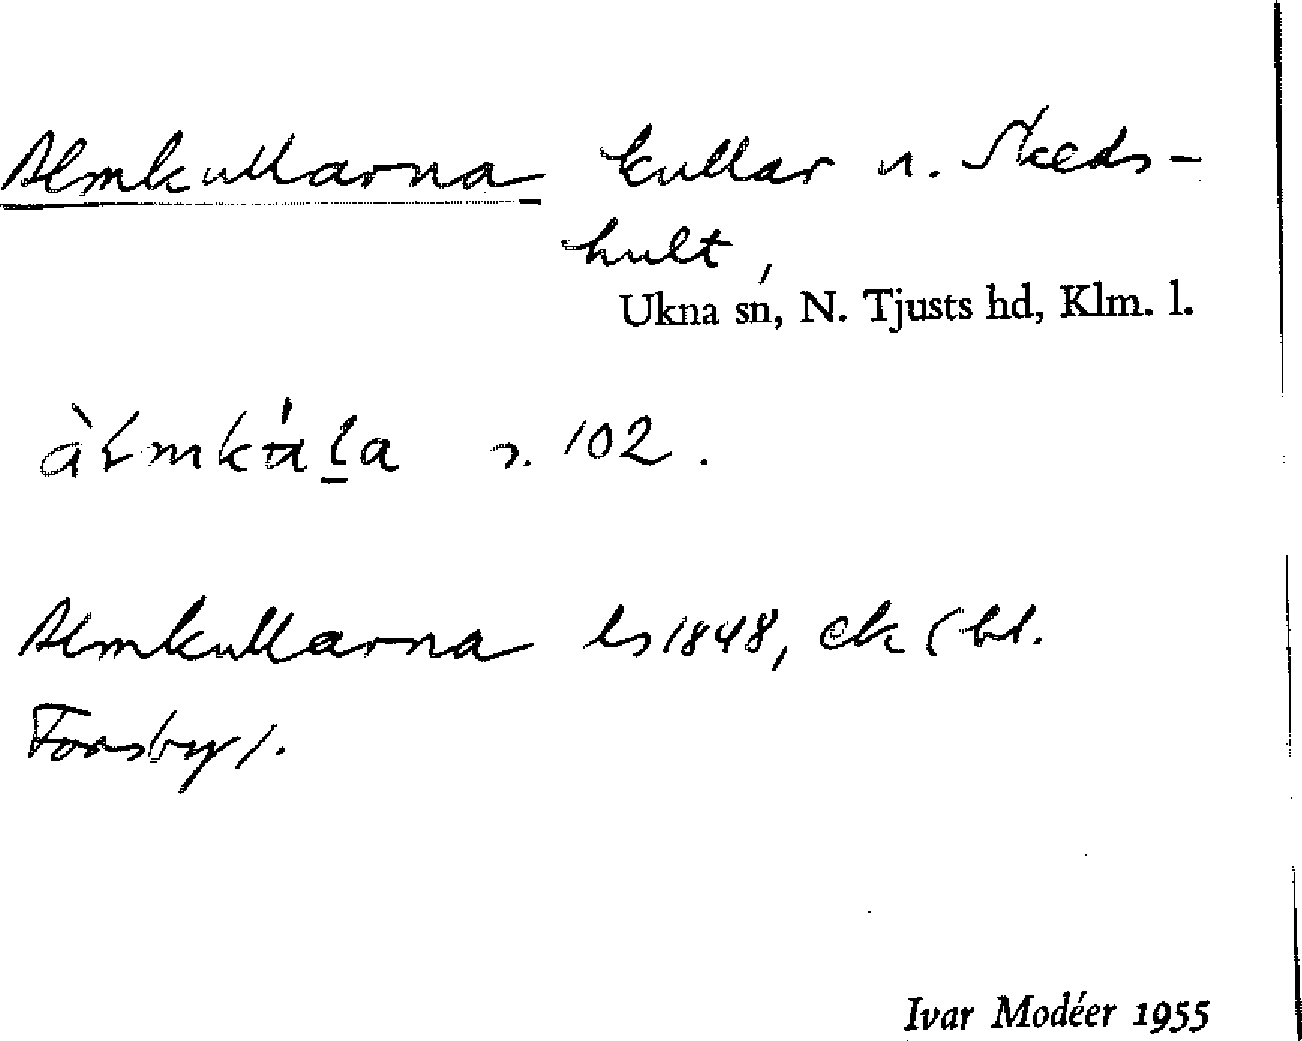 Almkullarna kullar n. Skeds-
hult,
Ukna sn, N. Tjusts hd, Klm. l.
àɫmkáḻa s. 102.
Almkullarna ls 1848, ek (bl.
Forsby).
Ivar Modéer 1955